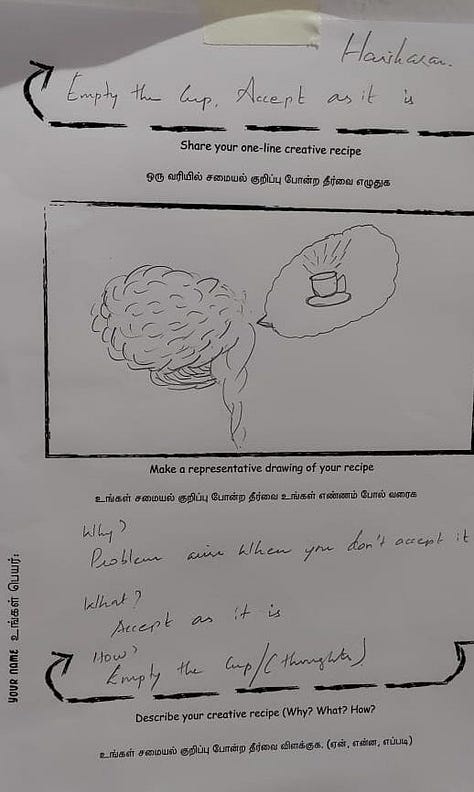 Hariharan.
Empty the Cup, Accept as it is
Share your one-line creative recipe
ஒரு வரியில் சமையல் குறிப்பு போன்ற தீர்வை எழுதுக
Make a representative drawing of your recipe
உங்கள் சமையல் குறிப்பு போன்ற தீர்வை உங்கள் எண்ணம் போல் வரைக
Why?
Problem arise when you don't accept it
What?
Accept as it is
How?
Empty the Cup/(thoughts)
Describe your creative recipe (Why? What? How?
உங்கள் சமையல் குறிப்பு போன்ற தீர்வை விளக்குக. (ஏன், என்ன, எப்படி)
YOUR NAME உங்கள் பெயர்: